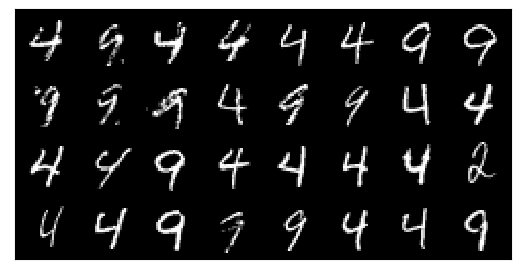 4 9 4 4 4 4 9 9
9 9 9 4 9 9 4 4
4 4 9 4 4 4 4 2
4 4 9 9 9 4 4 9